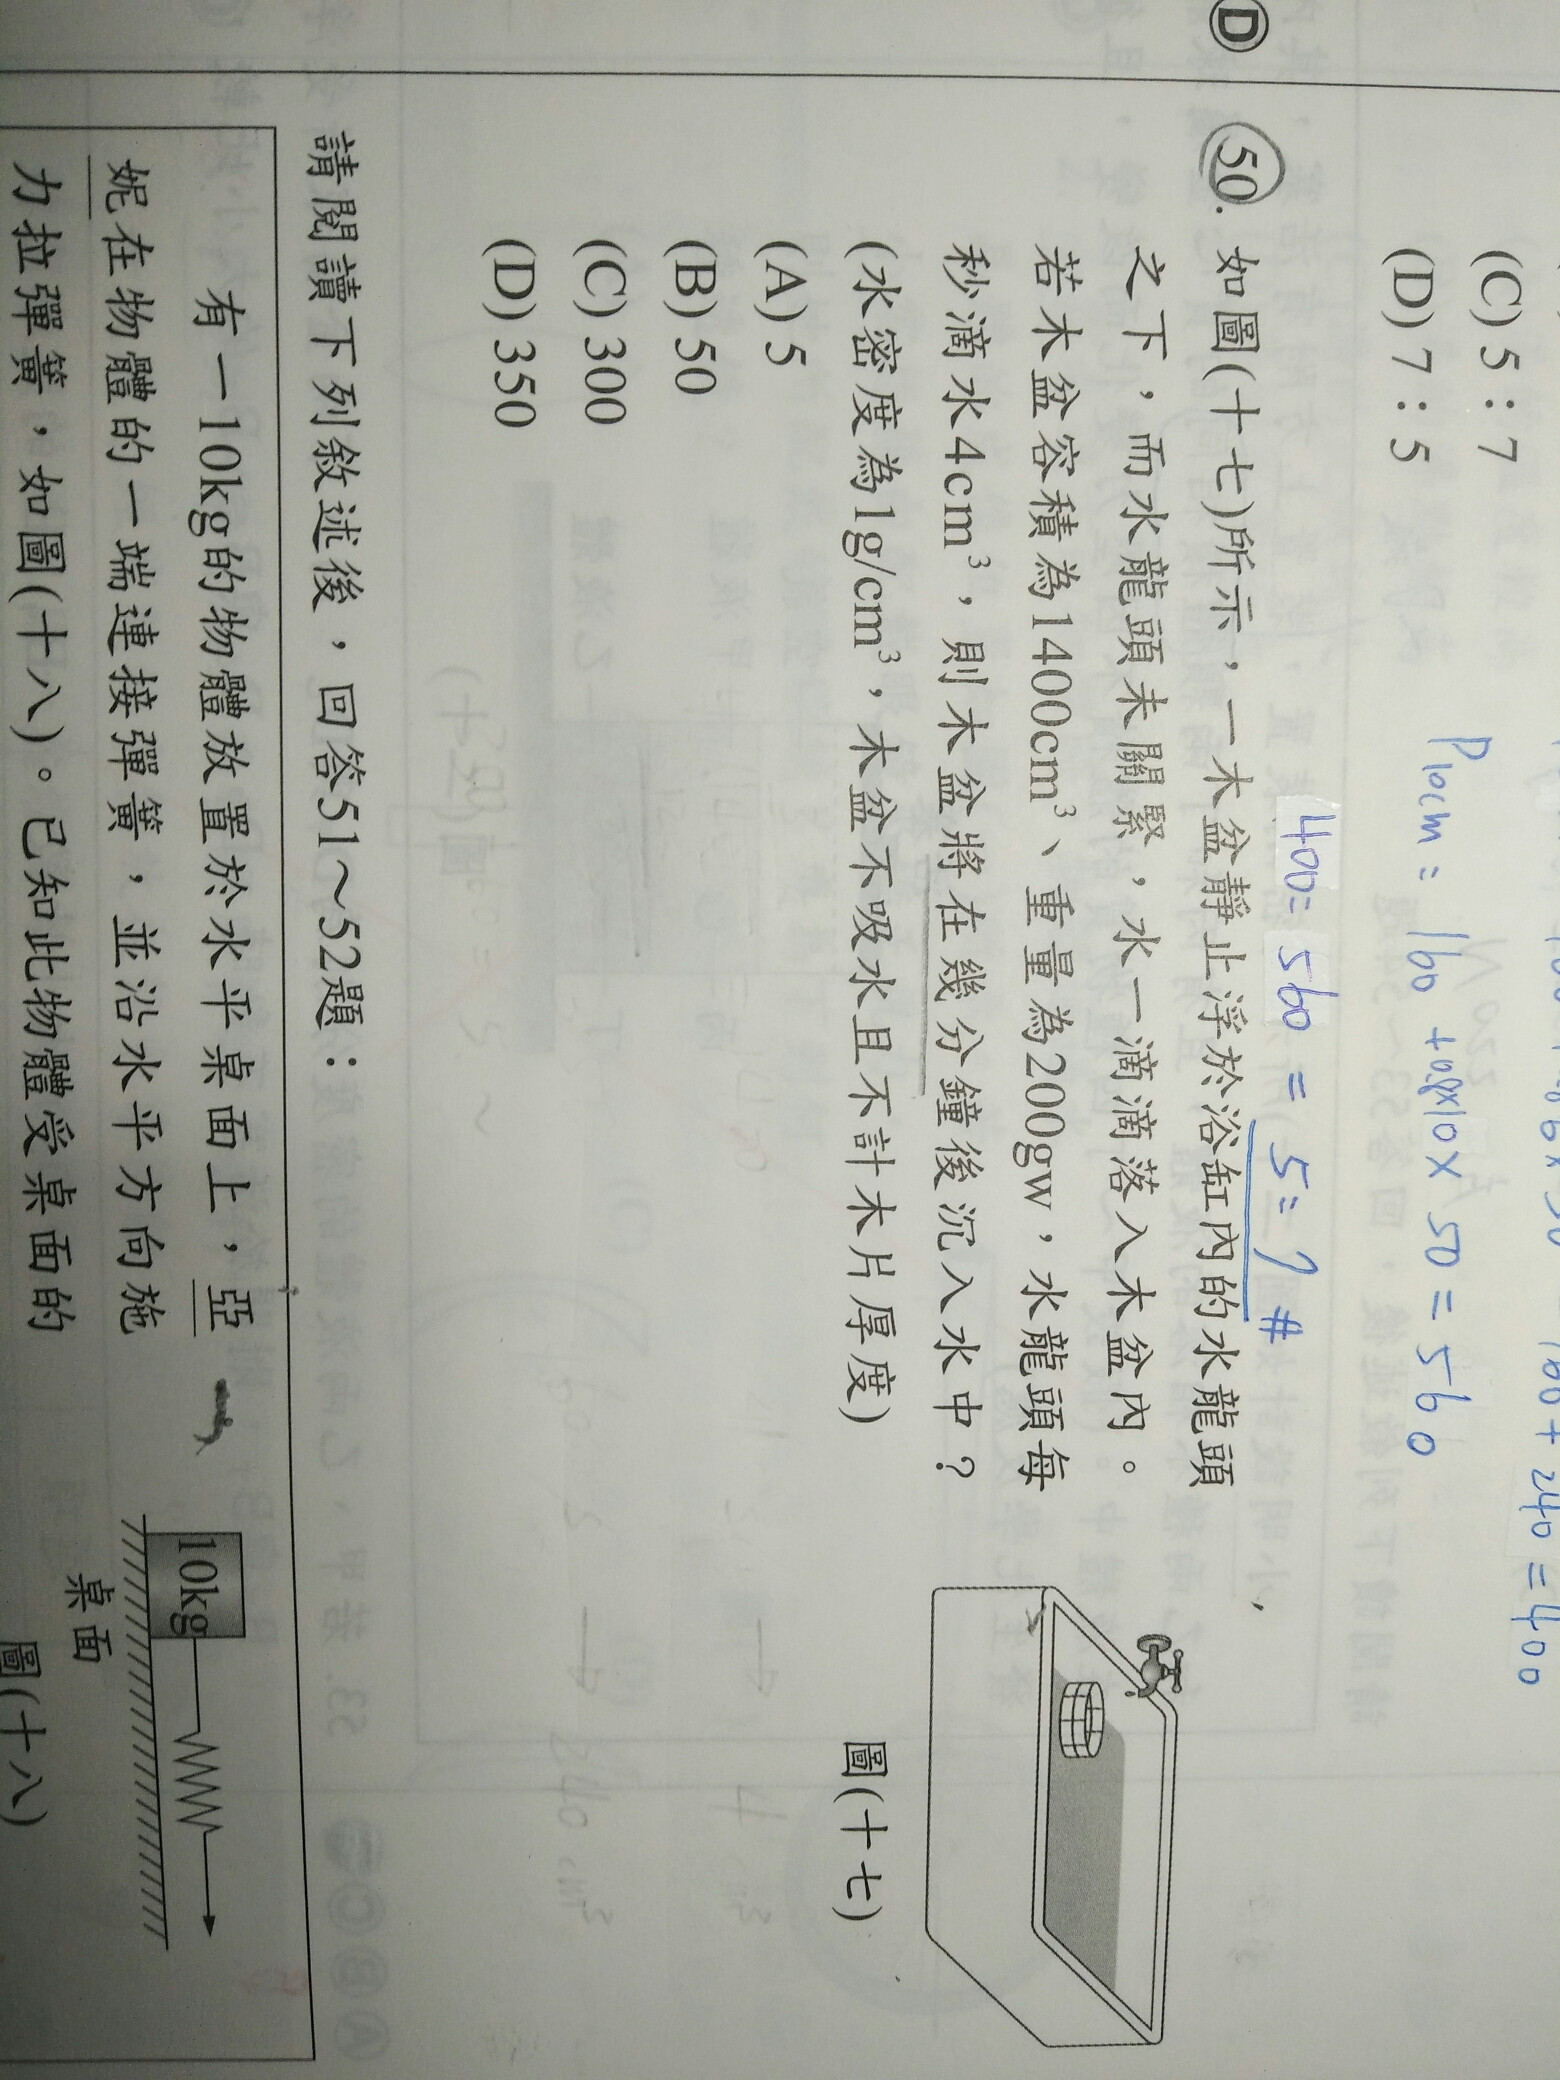 (C) 5：7
(D) 7：5
100+240=400
P10cm = 160 +0.8×10× 50 = 560
400= 560 = 5=7 #
Ⓓ 50. 如圖(十七)所示，一木盆靜止浮於浴缸內的水龍頭
之下，而水龍頭未關緊，水一滴滴落入木盆內。
若木盆容積為1400cm³、重量為200gw，水龍頭每
秒滴水4cm³，則木盆將在幾分鐘後沉入水中？
(水密度為1g/cm³，木盆不吸水且不計木片厚度)
(A) 5
(B) 50
(C) 300
(D) 350
圖(十七)
請閱讀下列敘述後，回答51～52題：
有一10kg的物體放置於水平桌面上，亞
妮在物體的一端連接彈簧，並沿水平方向施
力拉彈簧，如圖(十八)。已知此物體受桌面的
10kg
桌面
圖(十八)